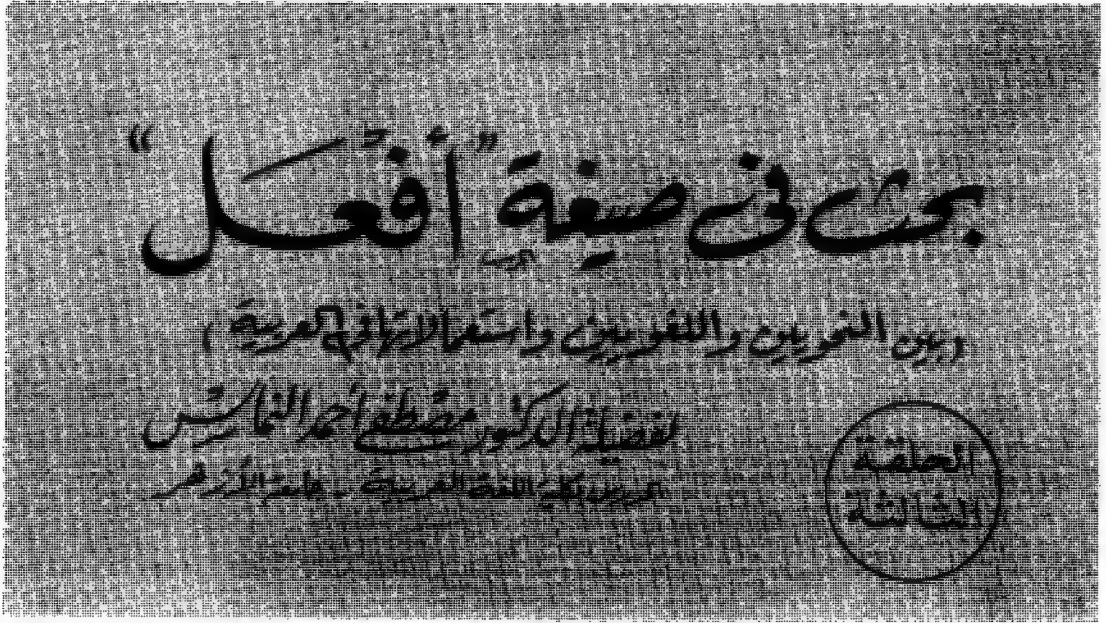 بحث في صيغة "أفْعَل"
(بين النحويين واللغويين واستعمالاتها في العربية)
لفضيلة الدكتور مصطفى أحمد النماس
المدرس بكلية اللغة العربية - جامعة الأزهر
الحلقة
الثالثة